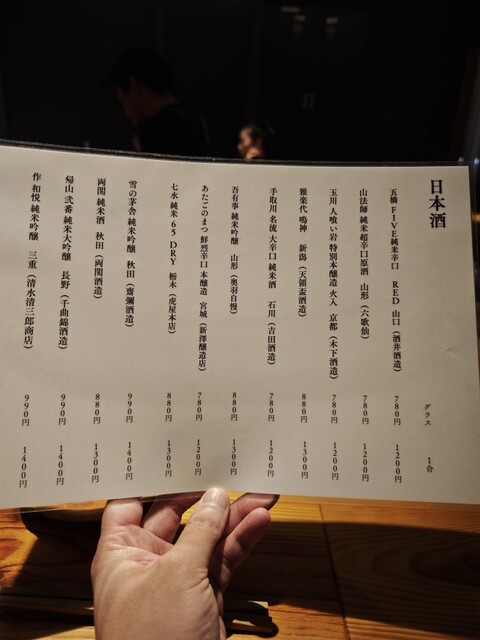 日本酒
グラス 1合
五橋 FIVE純米辛口 RED 山口（酒井酒造） 780円 1200円
山法師 純米超辛口原酒 山形（六歌仙） 780円 1200円
玉川 人喰い岩 特別本醸造 火入 京都（木下酒造） 780円 1200円
雅楽代 鳴神 新潟（天領盃酒造） 880円 1300円
手取川 名流 大辛口 純米酒 石川（吉田酒造） 780円 1200円
吾有事 純米吟醸 山形（奥羽自慢） 880円 1300円
あたごのまつ 鮮烈辛口 本醸造 宮城（新澤醸造店） 780円 1200円
七水 純米 65 DRY 栃木（虎屋本店） 880円 1300円
雪の茅舎 純米吟醸 秋田（齋彌酒造） 990円 1400円
両関 純米酒 秋田（両関酒造） 880円 1300円
帰山 弐番 純米大吟醸 長野（千曲錦酒造） 990円 1400円
作 和悦 純米吟醸 三重（清水清三郎商店） 990円 1400円